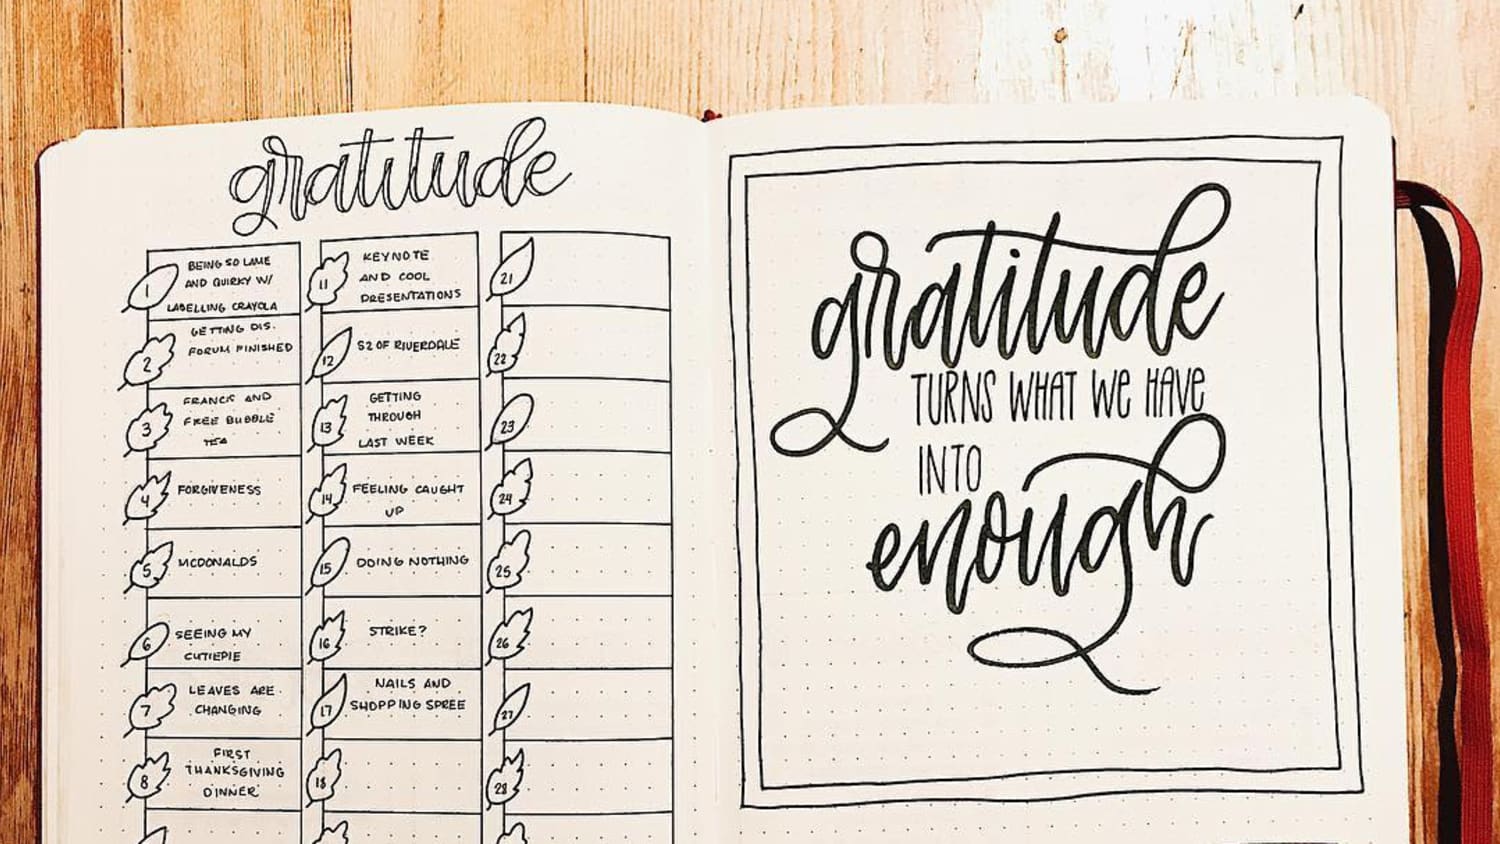 gratitude
1
BEING SO LAME
AND QUIRKY W/
LABELLING CRAYOLA
2
GETTING DIS.
FORUM FINISHED
3
FRANCIS AND
FREE BUBBLE
TEA
4
FORGIVENESS
5
MCDONALDS
6
SEEING MY
CUTIEPIE
7
LEAVES ARE
CHANGING
8
FIRST
THANKSGIVING
DINNER
11
KEYNOTE
AND COOL
PRESENTATIONS
12
S2 OF RIVERDALE
13
GETTING
THROUGH
LAST WEEK
14
FEELING CAUGHT
UP
15
DOING NOTHING
16
STRIKE?
17
NAILS AND
SHOPPING SPREE
18
21
22
23
24
25
26
27
28
gratitude
TURNS WHAT WE HAVE
INTO
enough